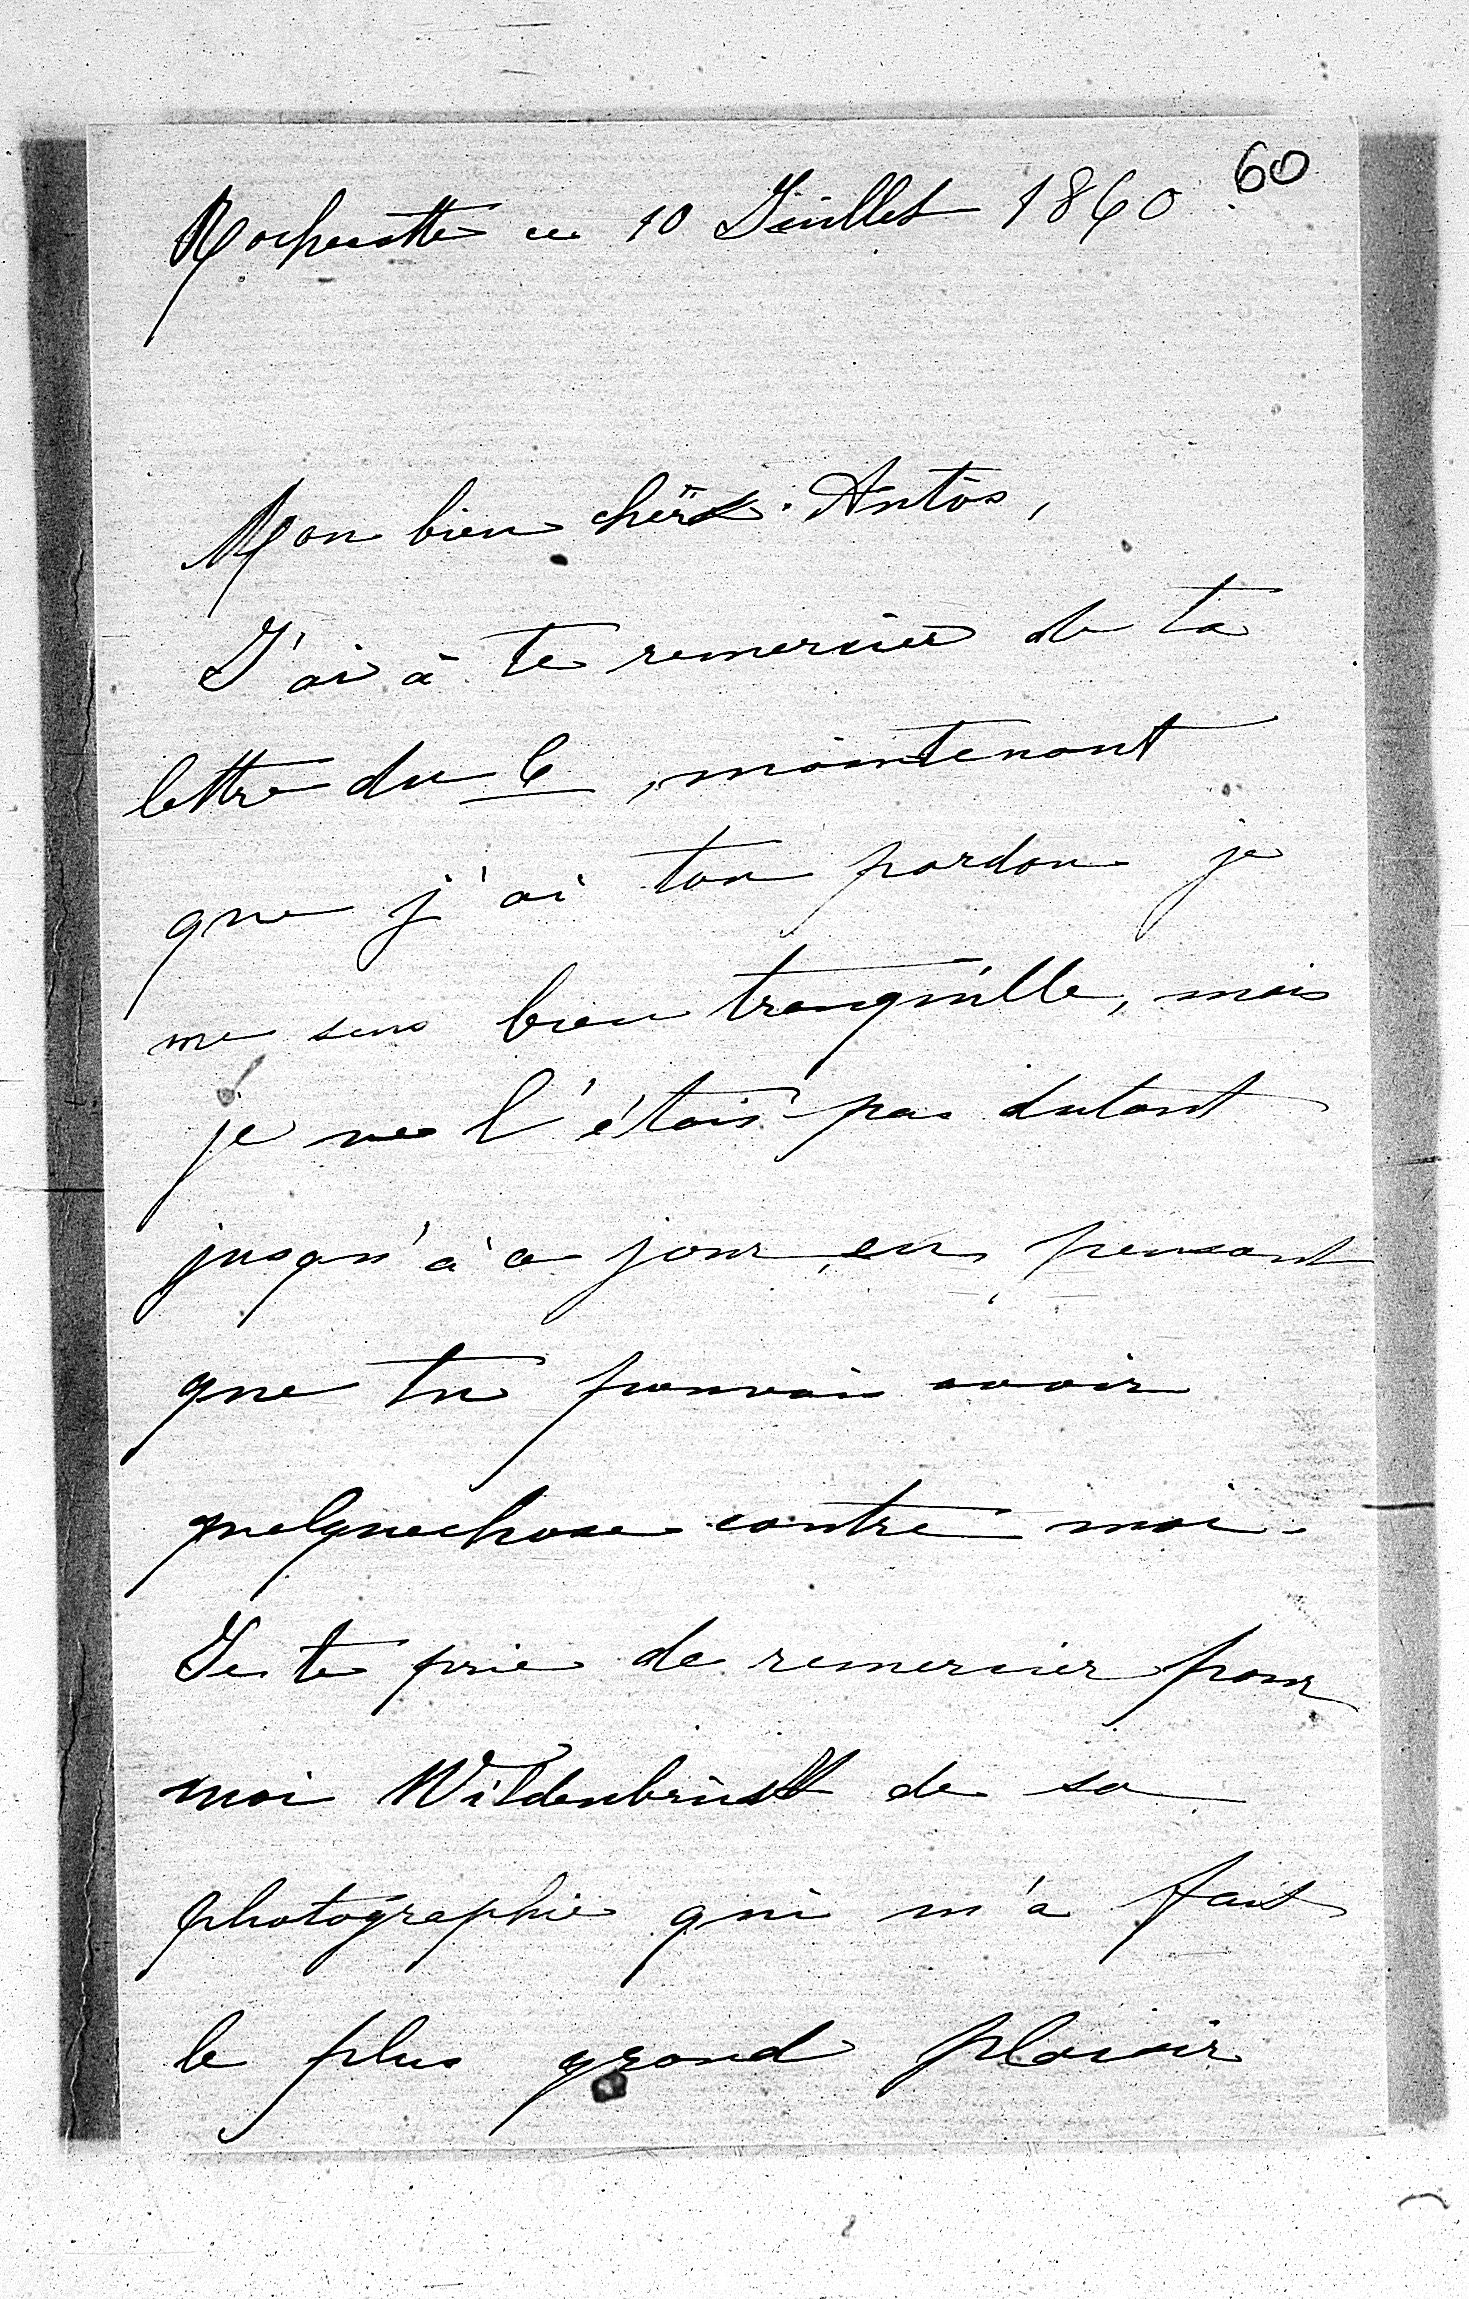 60
Rochecotte ce 10 Juillet 1860
Mon bien cher Antôs,
J'ai à te remercier de ta
lettre du 6, maintenant
que j'ai ton pardon je
me sens bien tranquille, mais
je ne l'étais pas dutout
jusqu'à ce jour, en pensant
que tu pouvais avoir
quelquechose contre moi.
Je te prie de remercier pour
moi Wildenbruch de sa
photographie qui m'a fait
le plus grand plaisir